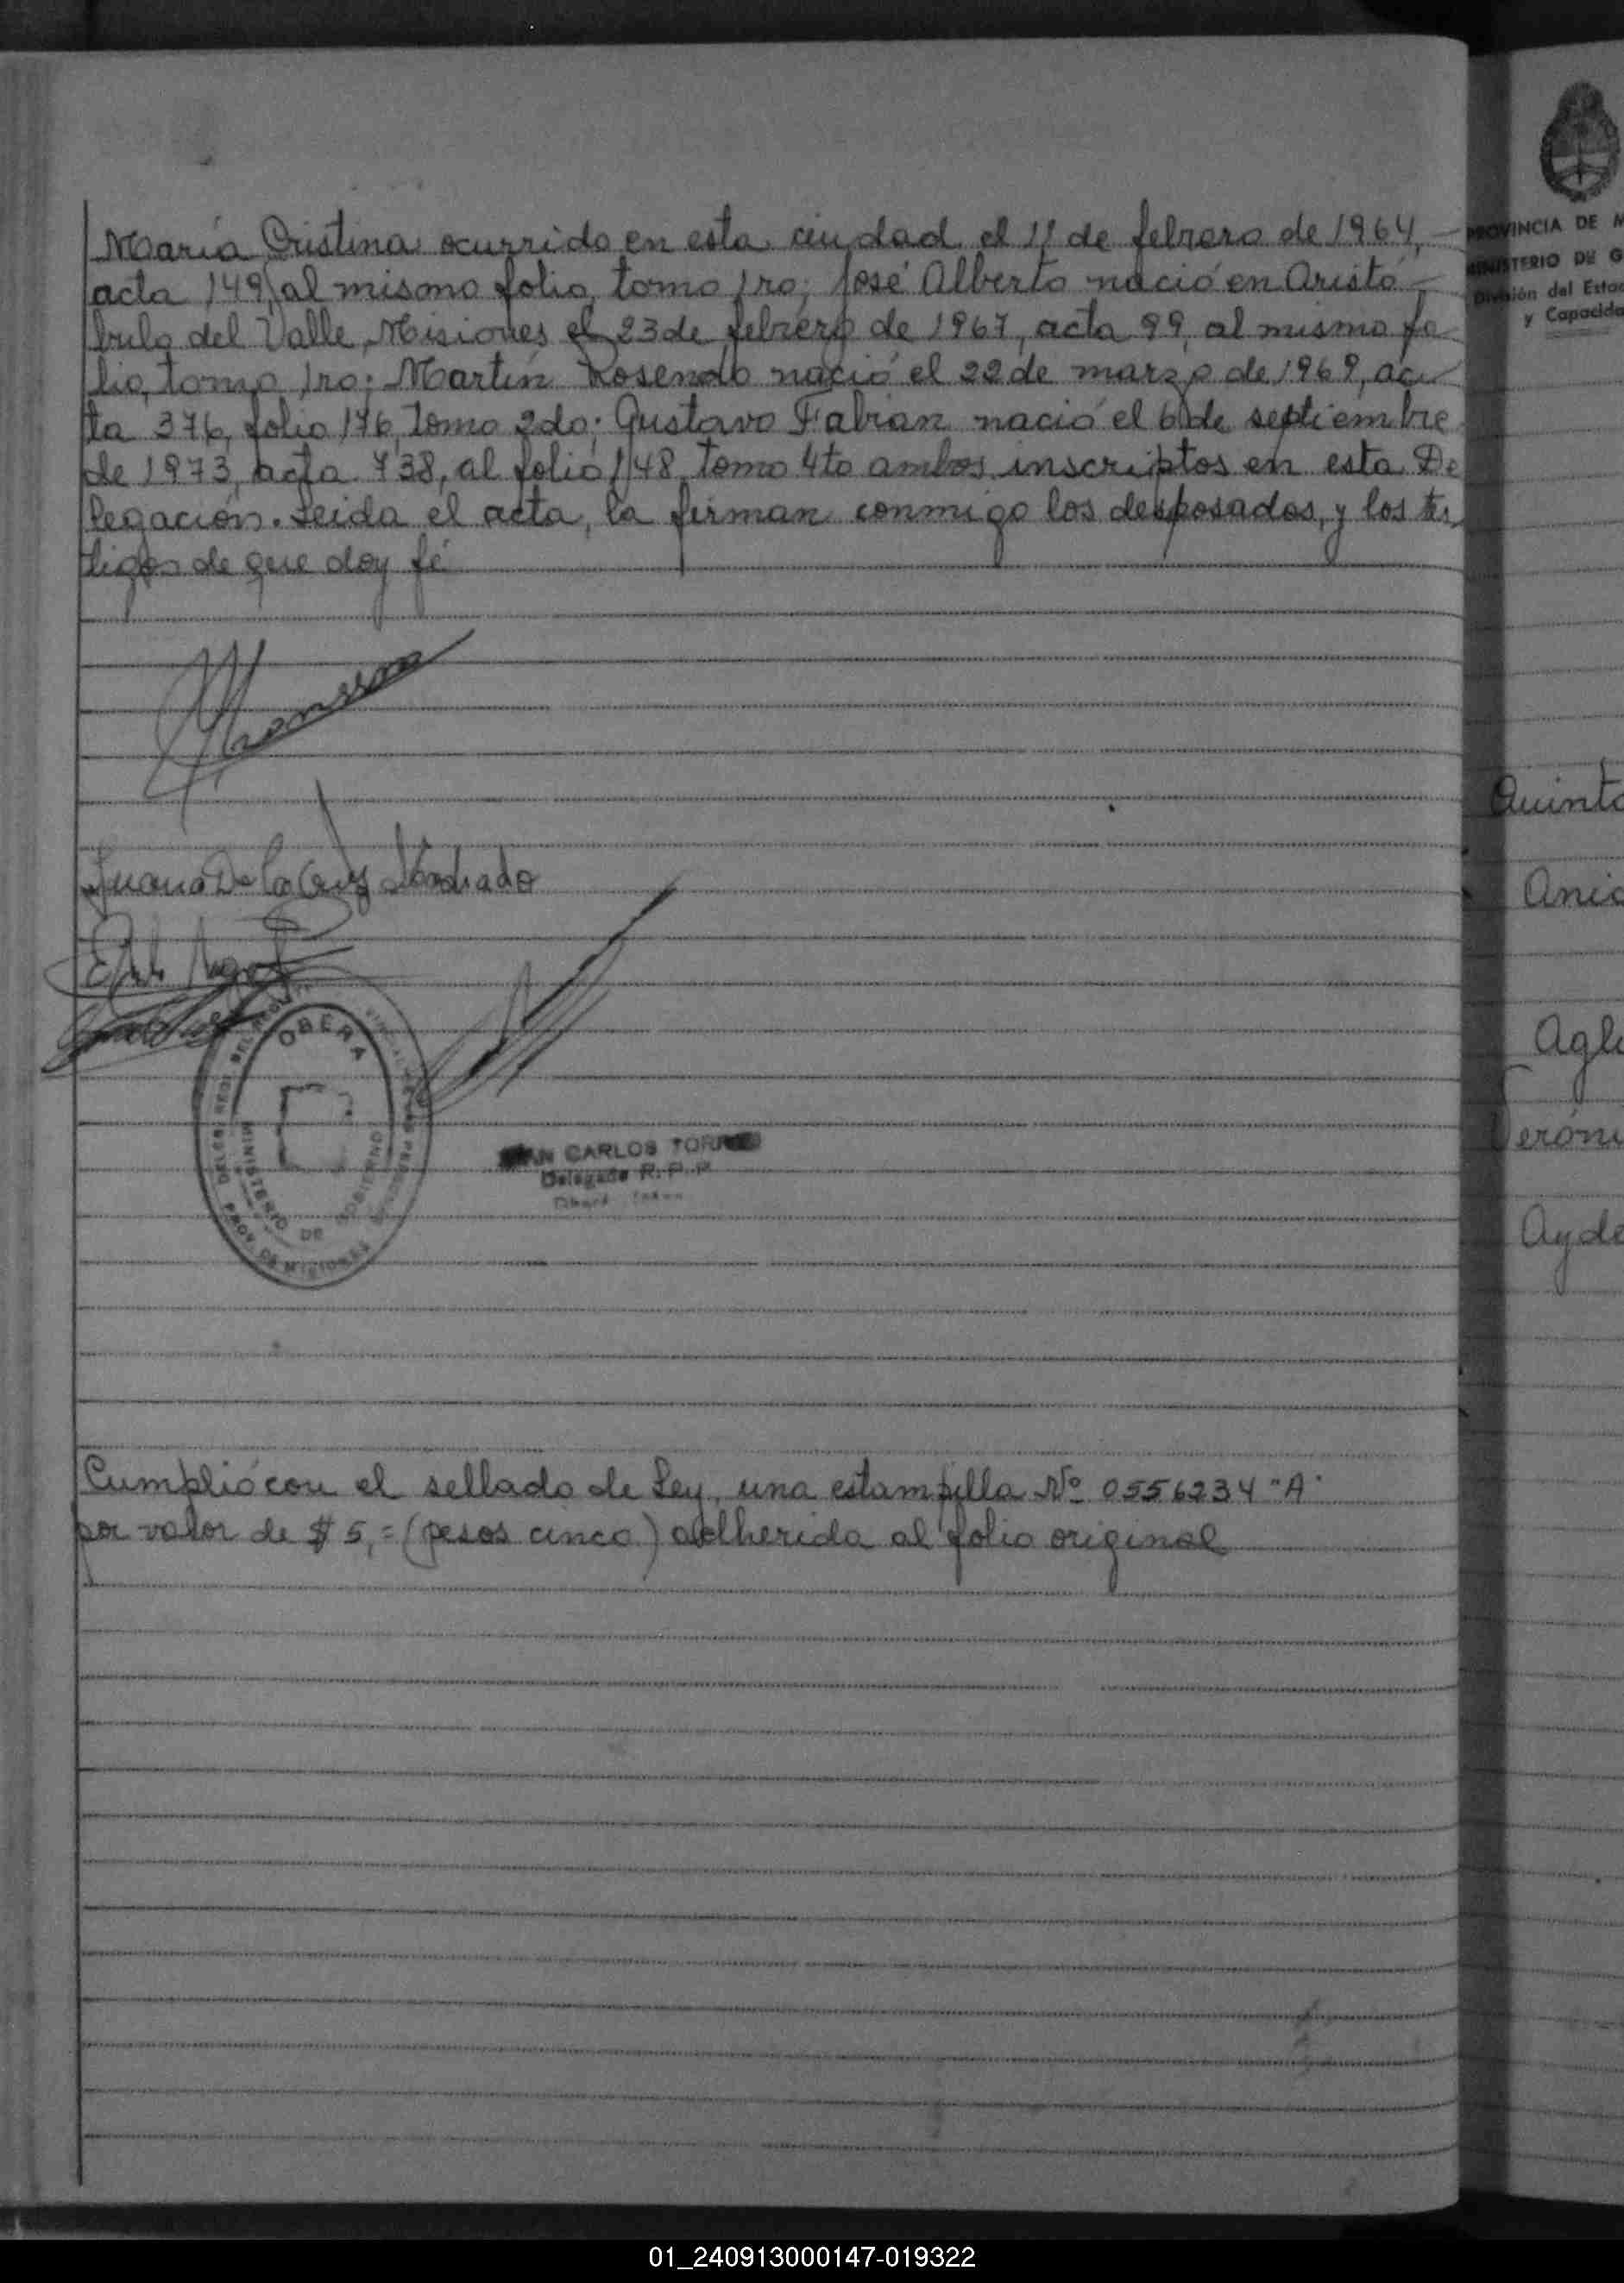 María Cristina ocurrido en esta ciudad el 11 de febrero de 1964,
acta 149, al mismo folio, tomo 1ro; José Alberto nació en Aristó
bulo del Valle, Misiones el 23 de febrero de 1967, acta 99, al mismo fo
lio, tomo 1ro; Martín Rosendo nació el 22 de marzo de 1969, ac
ta 376, folio 176, tomo 2do; Gustavo Fabian nació el 6 de septiembre
de 1973, acta 738, al folio 148, tomo 4to ambos inscriptos en esta De
legación. Leida el acta, la firman conmigo los desposados, y los tes
tigos de que doy fé
Juana De la Cruz
OBERA
MINISTERIO DE GOBIERNO
PROV. DE MISIONES
CARLOS TORRES
Delegado R. P. P.
Cumplió con el sellado de Ley, una estampilla Nº 0556234 "A"
por valor de $ 5,= (pesos cinco) adherida al folio original
PROVINCIA DE M
MINISTERIO DE G
División del Estad
y Capacida
Quinta
Agl
Ayde
01_240913000147-019322